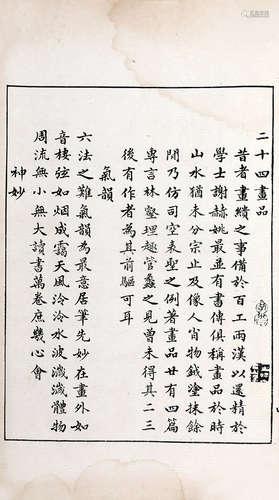 二十四畫品
昔者畫繢之事備於百工兩漢以還精於
學士謝赫姚最並有書傳俱稱畫品於時
山水猶未分宗止及像人肖物鉞塗抹餘
閒乃仿司空表聖之例著畫品廿有四篇
專言林壑理趣管蠡之見曾未得其二三
後有作者為其前驅可耳
氣韻
六法之難氣韻為最意居筆先妙在畫外如
音棲弦如烟成靄天風泠泠水波瀲瀲體物
周流無小無大讀書萬卷庶幾心會
神妙